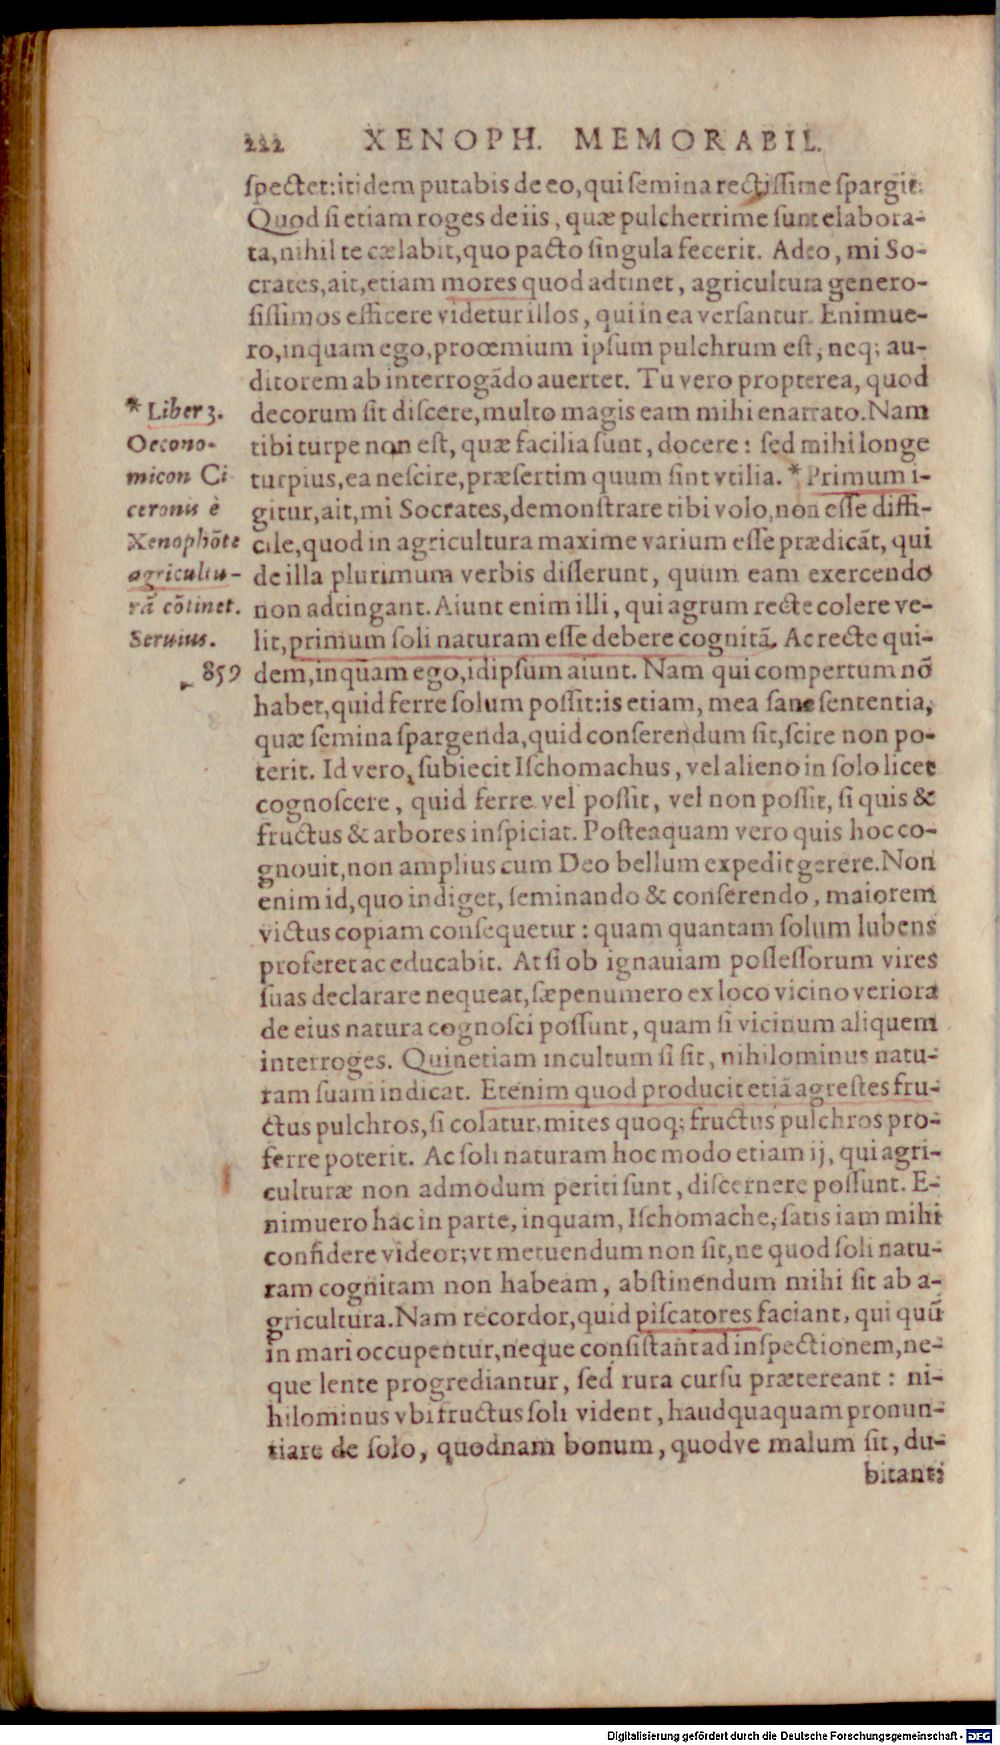 222 XENOPH. MEMORABIL.
ſpectet: itidem putabis de eo, qui ſemina rectiſſime ſpargit.
Quod ſi etiam roges de iis, quæ pulcherrime ſunt elabora-
ta, nihil te cælabit, quo pacto ſingula fecerit. Adeo, mi So-
crates, ait, etiam mores quod adtinet, agricultura genero-
ſiſſimos efficere videtur illos, qui in ea verſantur. Enimue-
ro, inquam ego, proœmium ipſum pulchrum eſt, neq; au-
ditorem ab interrogãdo auertet. Tu vero propterea, quod
decorum ſit diſcere, multo magis eam mihi enarrato. Nam
tibi turpe non eſt, quæ facilia ſunt, docere: ſed mihi longe
turpius, ea neſcire, præſertim quum ſint vtilia. * Primum i-
gitur, ait, mi Socrates, demonſtrare tibi volo, non eſſe diffi-
cile, quod in agricultura maxime varium eſſe prædicãt, qui
de illa plurimum verbis diſſerunt, quum eam exercendo
non adtingant. Aiunt enim illi, qui agrum recte colere ve-
lit, primum ſoli naturam eſſe debere cognitã. Ac recte qui-
dem, inquam ego, id ipſum aiunt. Nam qui compertum nõ
habet, quid ferre ſolum poſſit: is etiam, mea ſane ſententia,
quæ ſemina ſpargenda, quid conſerendum ſit, ſcire non po-
terit. Id vero, ſubiecit Iſchomachus, vel alieno in ſolo licet
cognoſcere, quid ferre vel poſſit, vel non poſſit, ſi quis &
fructus & arbores inſpiciat. Poſteaquam vero quis hoc co-
gnouit, non amplius cum Deo bellum expedit gerere. Non
enim id, quo indiget, ſeminando & conſerendo, maiorem
victus copiam conſequetur: quam quantam ſolum lubens
proferet ac educabit. At ſi ob ignauiam poſſeſſorum vires
ſuas declarare nequeat, ſæpenumero ex loco vicino veriora
de eius natura cognoſci poſſunt, quam ſi vicinum aliquem
interroges. Quinetiam incultum ſi ſit, nihilominus natu-
ram ſuam indicat. Etenim quod producit etiã agreſtes fru-
ctus pulchros, ſi colatur, mites quoq; fructus pulchros pro-
ferre poterit. Ac ſoli naturam hoc modo etiam ij, qui agri-
culturæ non admodum periti ſunt, diſcernere poſſunt. E-
nimuero hac in parte, inquam, Iſchomache, ſatis iam mihi
confidere videor; vt metuendum non ſit, ne quod ſoli natu-
ram cognitam non habeam, abſtinendum mihi ſit ab a-
gricultura. Nam recordor, quid piſcatores faciant, qui quũ
in mari occupentur, neque conſiſtant ad inſpectionem, ne-
que lente progrediantur, ſed rura curſu prætereant: ni-
hilominus vbi fructus ſoli vident, haudquaquam pronun-
tiare de ſolo, quodnam bonum, quodve malum ſit, du-
bitant:
* Liber 3.
Oecono-
micon Ci
ceronis è
Xenophõte
agricultu-
rã cõtinet.
Seruius.
859
Digitalisierung gefördert durch die Deutsche Forschungsgemeinschaft - DFG